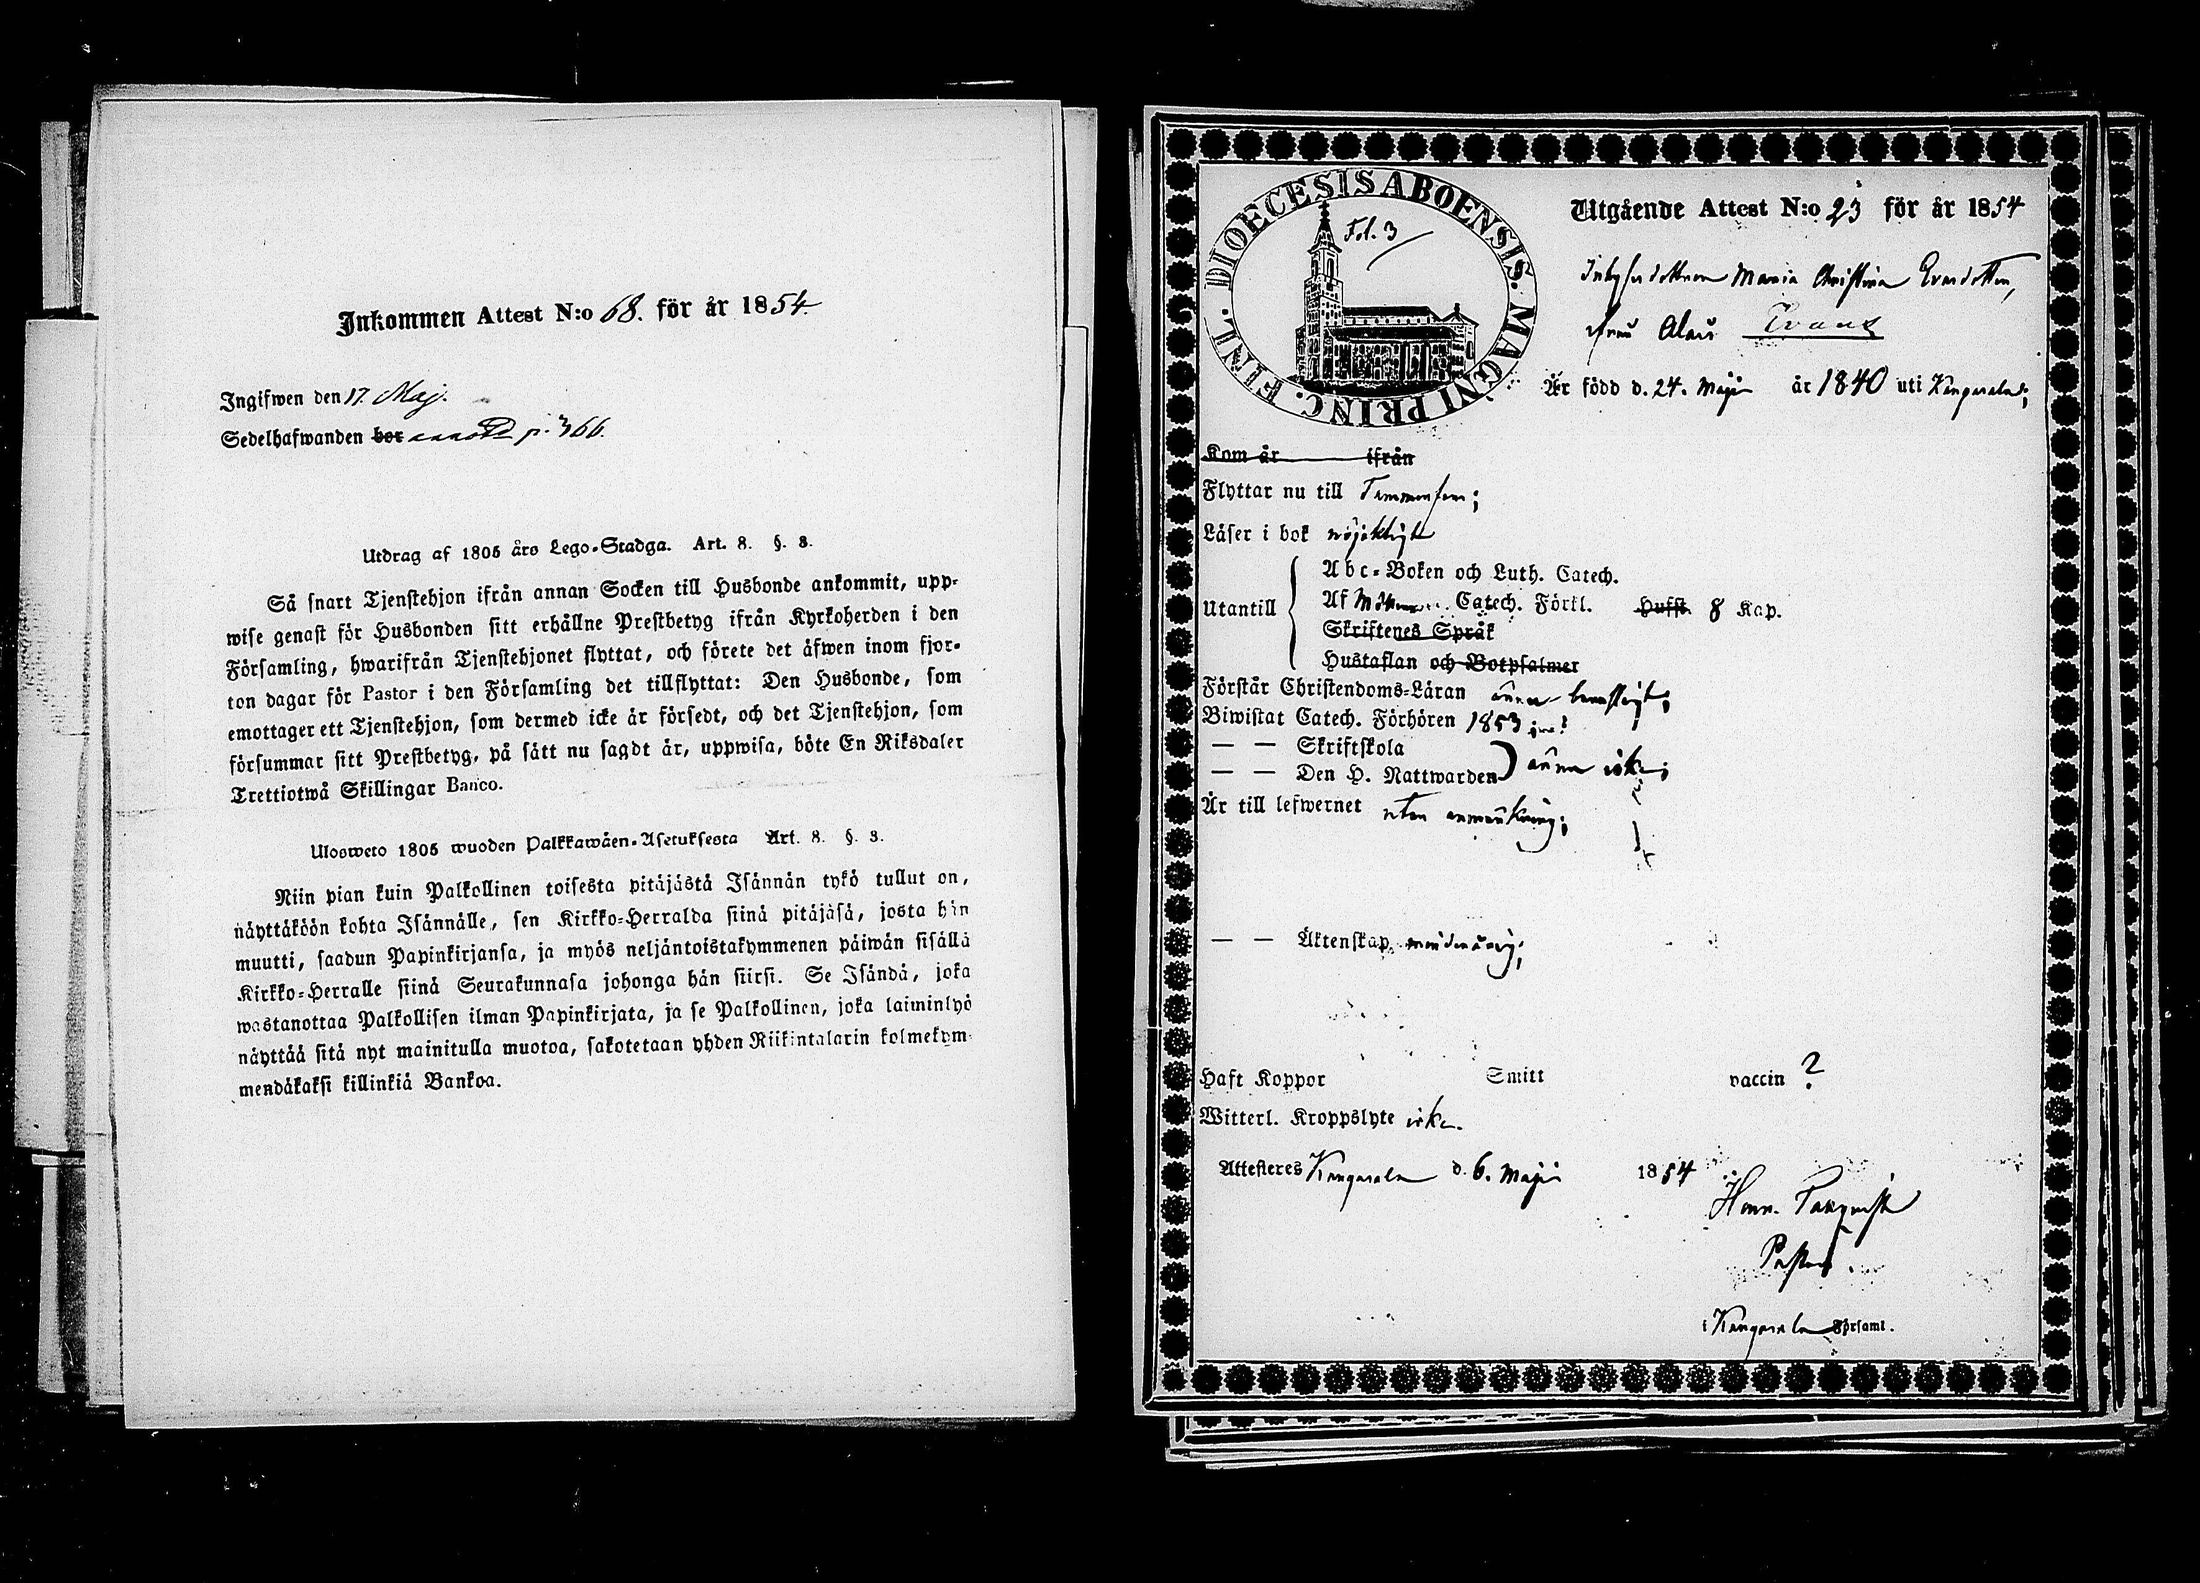 Inkommen Attest N:o 68. för år 1854.
Ingifwen den 17. Maj.
Sedelhafwanden bor p. 366.
Utdrag af 1805 års Lego-Stadga. Art. 8. §. 8.
Så snart Tjenstehjon ifrån annan Socken till Husbonde ankommit, upp-
wise genast för Husbonden sitt erhållne Prestbetyg ifrån Kyrkoherden i den
Församling, hwarifrån Tjenstehjonet flyttat, och förete det äfwen inom fjor-
ton dagar för Pastor i den Församling det tillflyttat: Den Husbonde, som
emottager ett Tjenstehjon, som dermed icke är försedt, och det Tjenstehjon, som
försummar sitt Prestbetyg, på sätt nu sagdt är, uppwisa, böte En Riksdaler
Trettiotwå Skillingar Banco.
Ulosweto 1805 wuoden Palkkawäen-Asetuksesta Art. 8. §. 8.
Niin pian kuin Palkollinen toisesta pitäjästä Isännän tykö tullut on,
näyttäköön kohta Isännälle, sen Kirkko-Herralda siinä pitäjäsä, josta hän
muutti, saadun Papinkirjansa, ja myös neljäntoistakymmenen päiwän sisällä
Kirkko-Herralle siinä Seurakunnasa johonga hän siirsi. Se Isändä, joka
wastanottaa Palkollisen ilman Papinkirjata, ja se Palkollinen, joka laiminlyö
näyttää sitä nyt mainitulla muotoa, sakotetaan yhden Riikintalarin kolmekym-
mendäkaksi killinkiä Bankoa.
DIOECESIS ABOENSIS. MAGNI PRINC. FINL.
Fol. 3
Utgående Attest N:o 23 för år 1854
Maria Christina Evasdotter,
från Alais
Är född d. 24. Maji år 1840 uti Kangasala;
Kom år ifrån
Flyttar nu till Tammerfors;
Läser i bok nöjaktigt
Utantill
Abc-Boken och Luth. Catech.
Af Catech. Förkl. Hufst. 8 Kap.
Skriftenes Språk
Hustaflan och Botpsalmer
Förstår Christendoms-Läran ännu
Biwistat Catech. Förhören 1853
— — Skriftskola
— — Den H. Nattwarden ännu icke;
Är till lefwernet utan anmärkning;
— — Äktenskap minderårig;
Haft Koppor Smitt vaccin ?
Witterl. Kroppslyte icke.
Attesteres Kangasala d. 6. Maji 1854
Henr.
Pastor.
i Kangasala Församl.